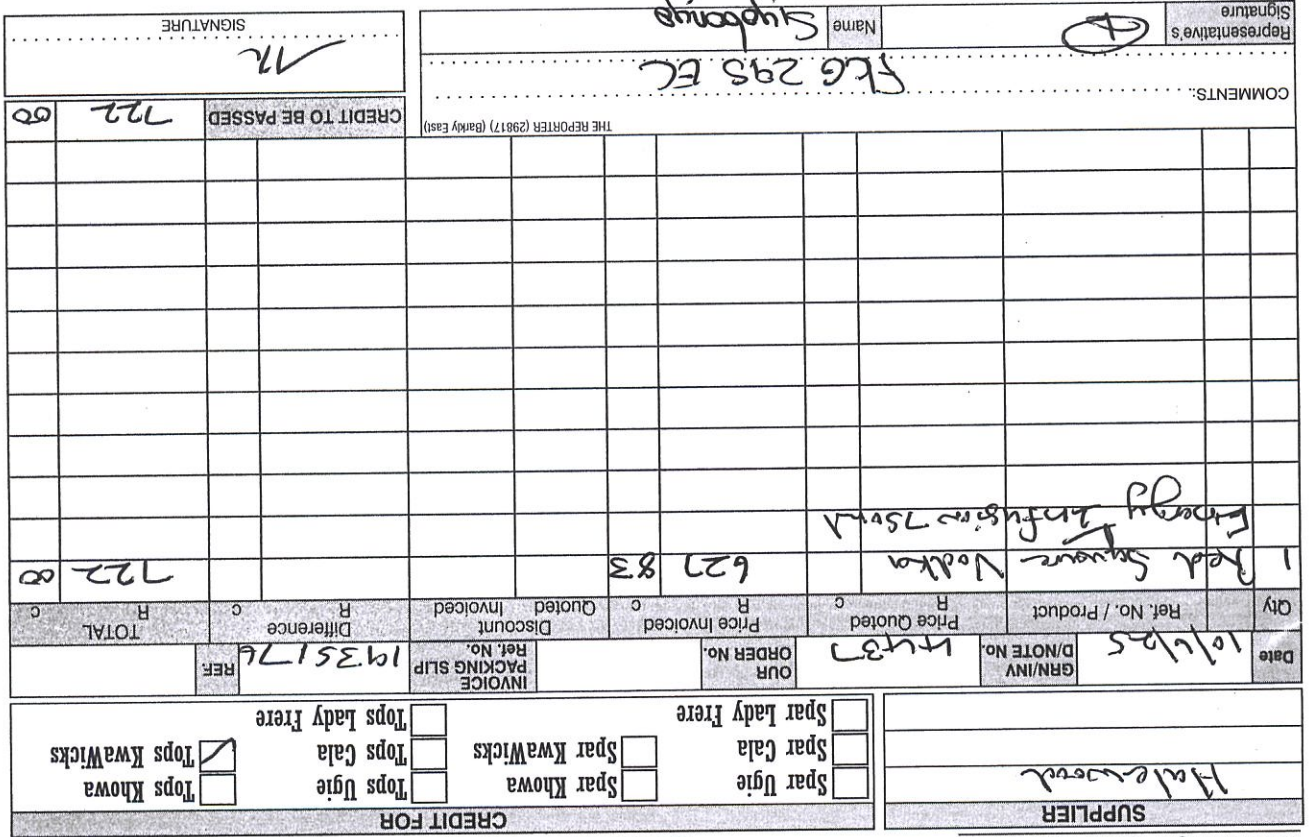 SUPPLIER
Halewood
CREDIT FOR
Spar Ugie Spar Khowa Tops Ugie Tops Khowa
Spar Cala Spar KwaWicks Tops Cala Tops KwaWicks
Spar Lady Frere Tops Lady Frere
Date 10/6/25 GRN/INV D/NOTE No. 4437 OUR ORDER No. INVOICE PACKING SLIP Ref. No. 1935176 REF.
Qty Ref. No. / Product Price Quoted R c Price Invoiced R c Discount Quoted Invoiced Difference R c TOTAL R c
1 Red Square Vodka 627 83 722 00
Energy Infusion 750ml
THE REPORTER (29817) (Barkly East)
CREDIT TO BE PASSED 722 00
COMMENTS:
FKG 295 EC
Representative's Signature Name
SIGNATURE